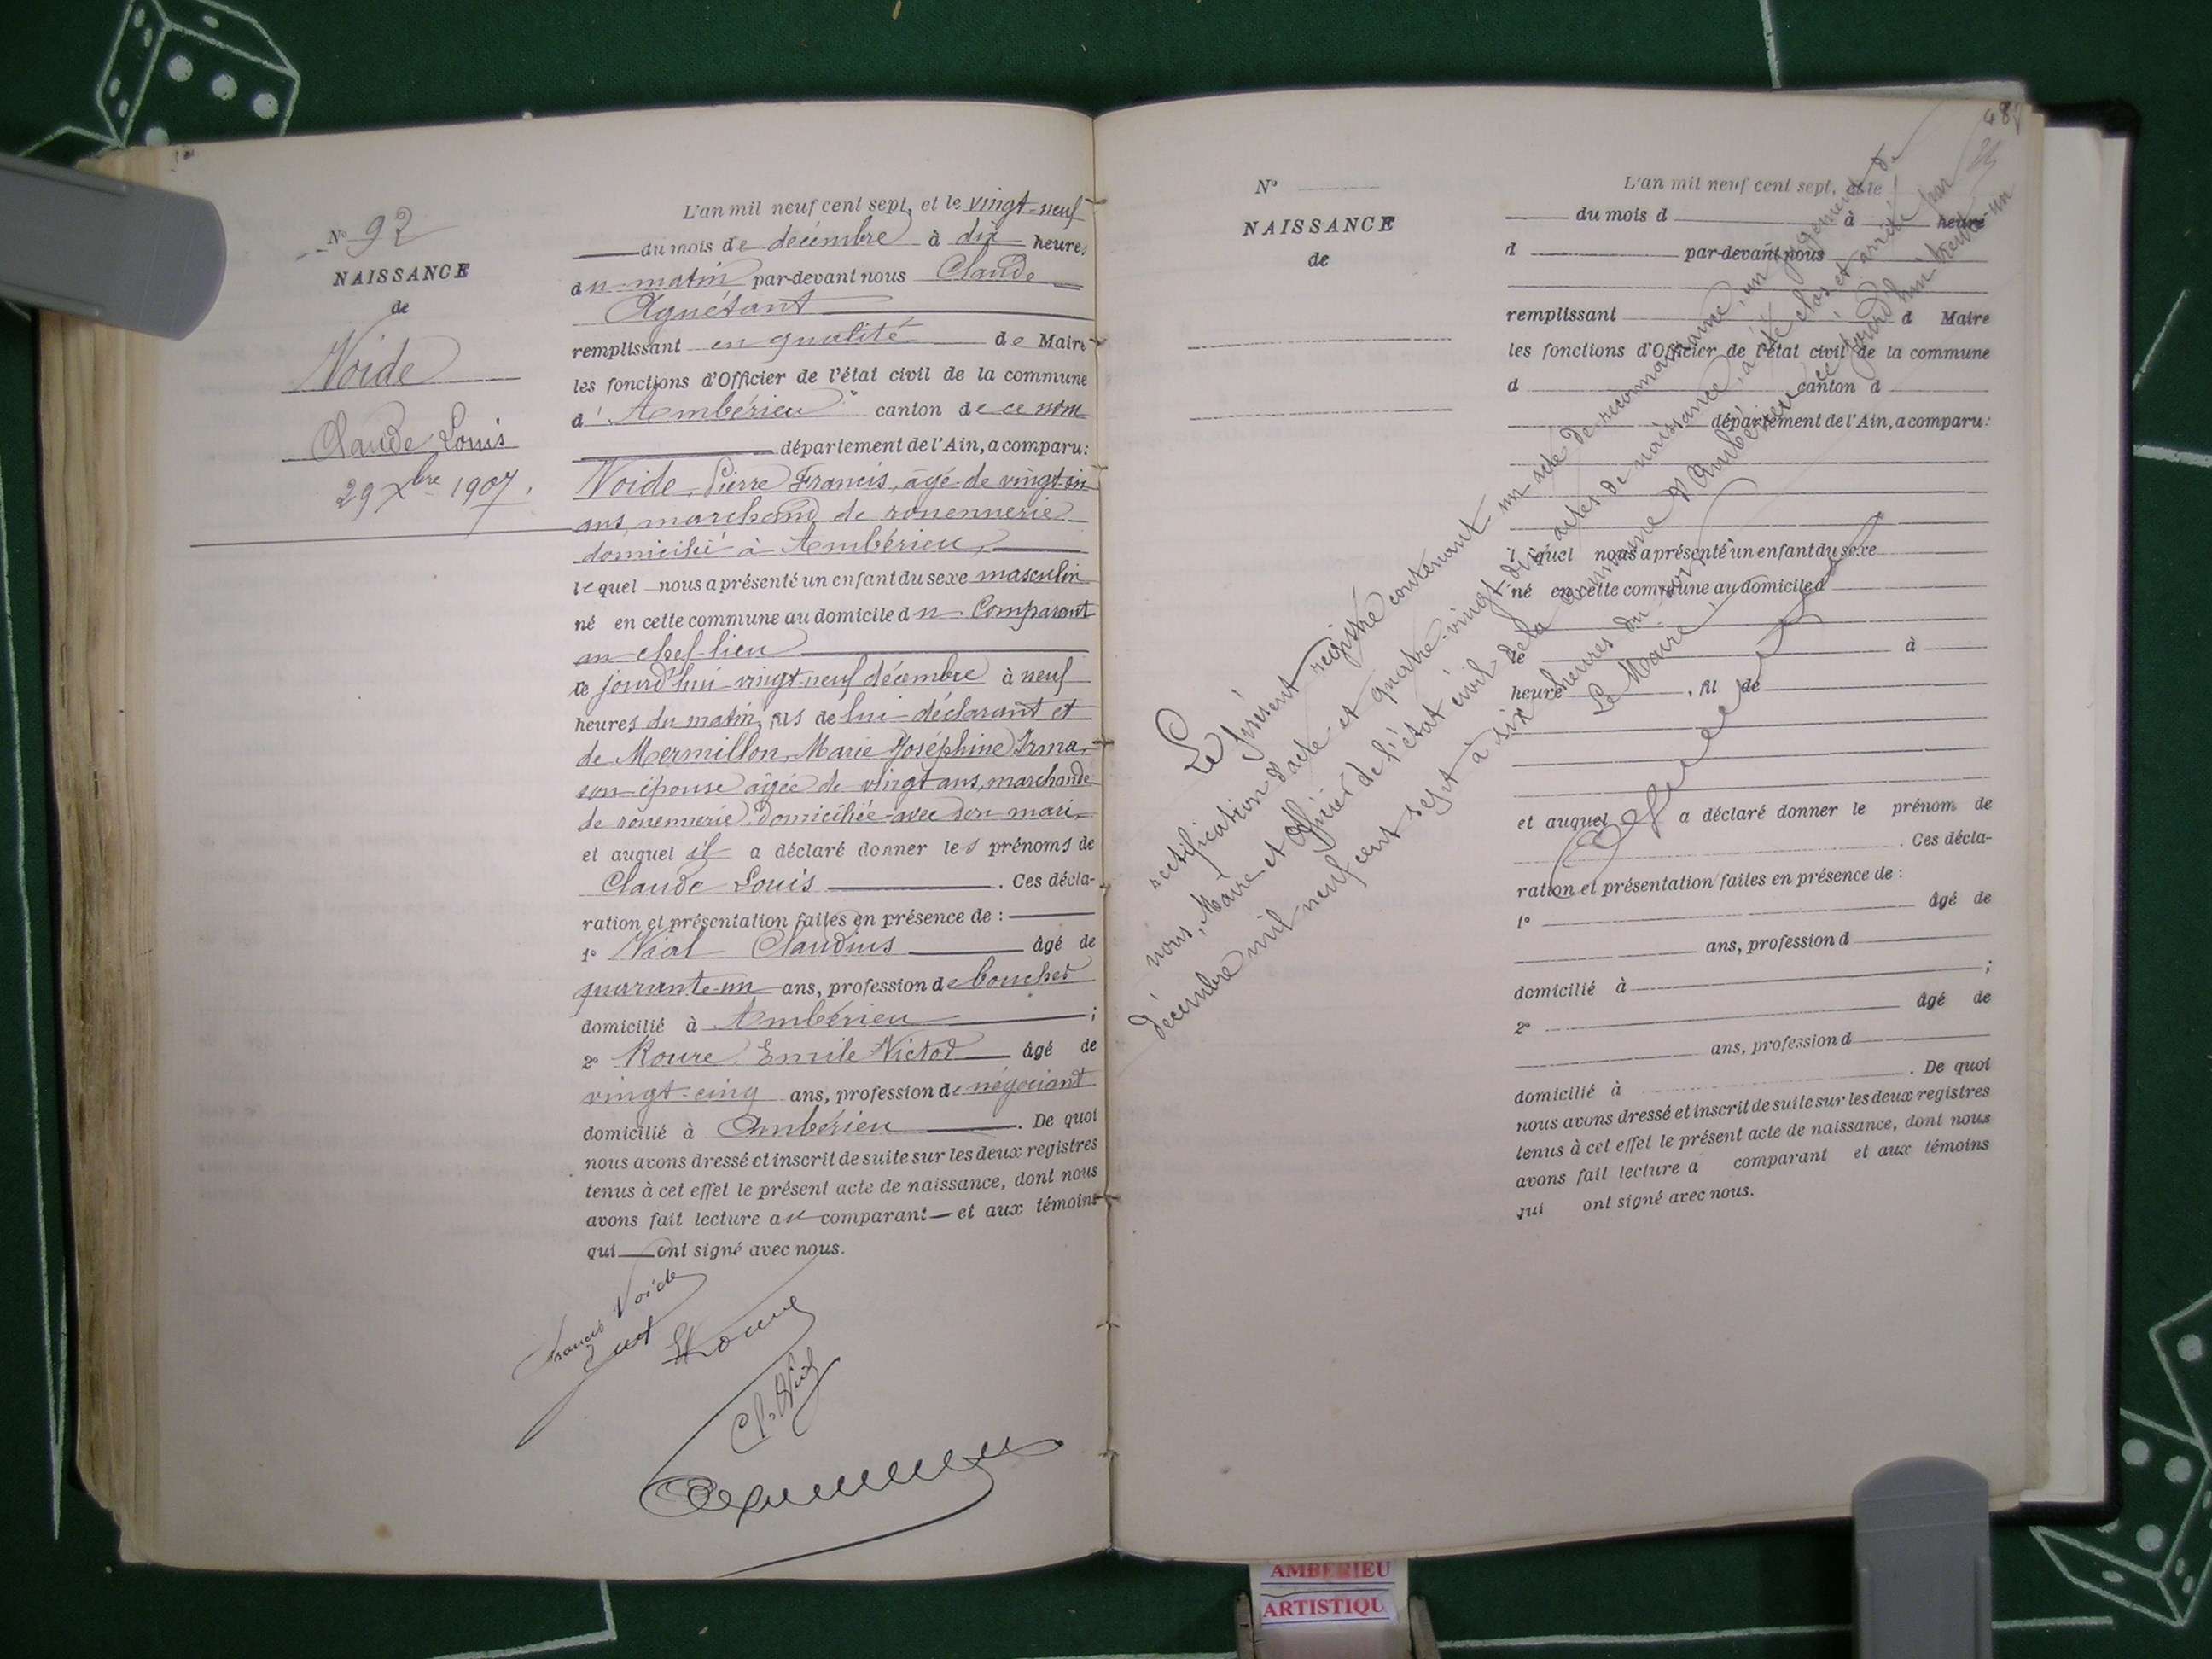 N° 92
NAISSANCE
de
Noide
Claude Louis
29 Xbre 1907.
L'an mil neuf cent sept, et le vingt-neuf
du mois de décembre à dix heures
du matin par-devant nous Claude
Agnétant
remplissant en qualité de Maire
les fonctions d'Officier de l'état civil de la commune
d'Ambérieu canton de ce nom
département de l'Ain, a comparu:
Noide, Pierre Francis, âgé de vingt
ans, marchand de rouennerie
domicilié à Ambérieu,
lequel nous a présenté un enfant du sexe masculin
né en cette commune au domicile du Comparant
au chef-lieu
ce jourd'hui vingt-neuf décembre à neuf
heures du matin, fils de lui déclarant et
de Mermillon, Marie Joséphine Irma,
son épouse âgée de vingt ans, marchande
de rouennerie domiciliée avec son mari,
et auquel il a déclaré donner les prénoms de
Claude Louis . Ces décla-
ration et présentation faites en présence de :
1° Vial Claudius âgé de
quarante-un ans, profession de boucher
domicilié à Ambérieu ;
2° Roure Emile Victor âgé de
vingt-cinq ans, profession de négociant
domicilié à Ambérieu . De quoi
nous avons dressé et inscrit de suite sur les deux registres
tenus à cet effet le présent acte de naissance, dont nous
avons fait lecture au comparant et aux témoins
qui ont signé avec nous.
Francis Noide
Roure
Cl. Vial
N°
NAISSANCE
de
L'an mil neuf cent sept, et le
du mois d à heure
d par-devant nous
remplissant d Maire
les fonctions d'Officier de l'état civil de la commune
d canton d
département de l'Ain, a comparu:
lequel nous a présenté un enfant du sexe
né en cette commune au domicile d
le à
heure , fil de
et auquel a déclaré donner le prénom de
. Ces décla-
ration et présentation faites en présence de :
1° âgé de
ans, profession d
domicilié à ;
2° âgé de
ans, profession d
domicilié à . De quoi
nous avons dressé et inscrit de suite sur les deux registres
tenus à cet effet le présent acte de naissance, dont nous
avons fait lecture a comparant et aux témoins
qui ont signé avec nous.
Le présent registre contenant un acte de reconnaissance, un jugement de
rectification d'acte et quatre-vingt-dix actes de naissance, a été clos et arrêté par
nous, Maire et Officier de l'état civil de la commune d'Ambérieu ce jourd'hui trente-un
décembre mil neuf cent sept à six heures du soir
Le Maire
AMBERIEU
ARTISTIQU